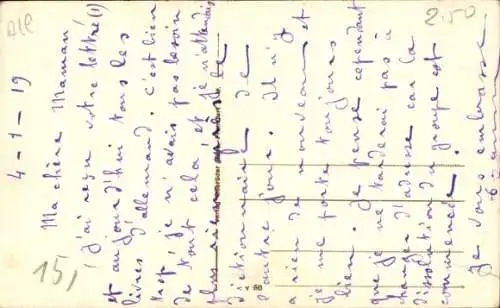 all
2.50
15,
4-1-19
Ma chère Maman
J'ai reçu votre lettre (1)
et aujourd'hui tous les
livres d'allemand. C'est bien
je n'avais pas besoin
de tout cela et je n'attendais
plus
dictionnaire de
l'autre jour. Il n'y
a rien de nouveau et
je me porte toujours
bien. Je pense cependant
que je ne tarderai pas à
changer d'adresse car la
dissolution du groupe est
commencée.
Je vous embrasse